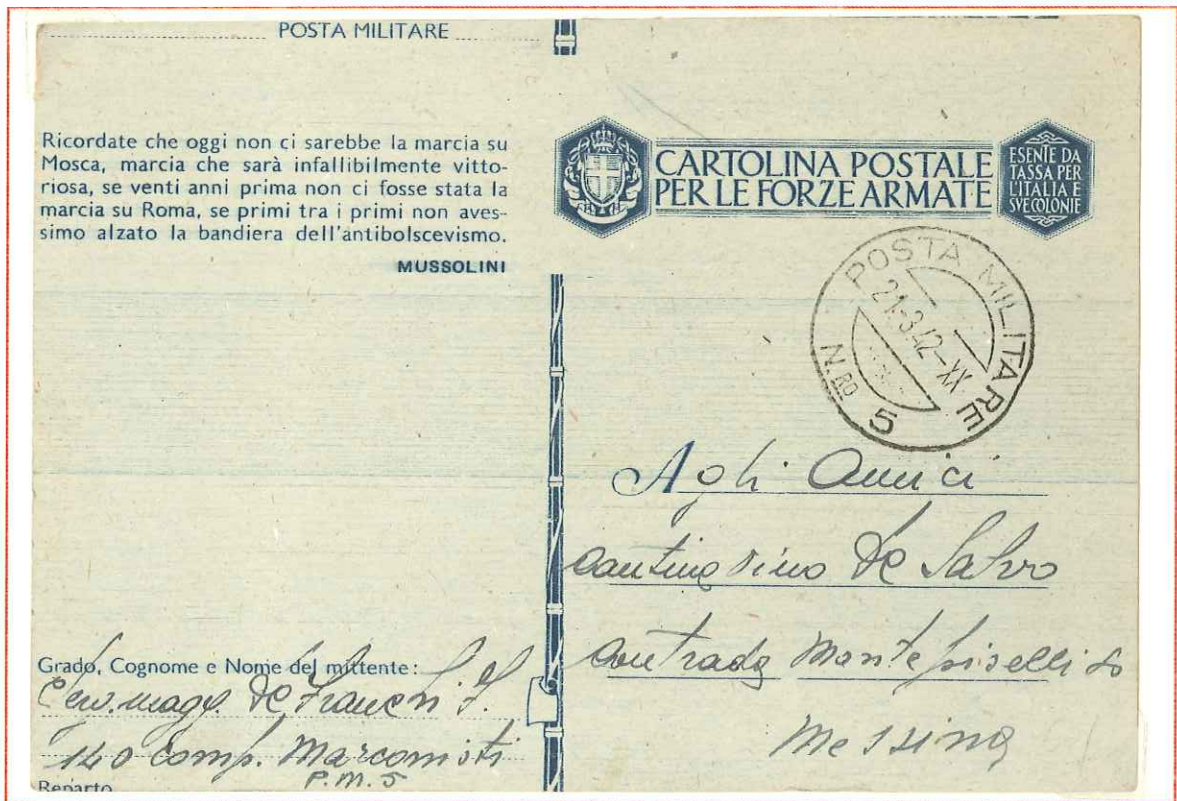 POSTA MILITARE
Ricordate che oggi non ci sarebbe la marcia su
Mosca, marcia che sarà infallibilmente vitto-
riosa, se venti anni prima non ci fosse stata la
marcia su Roma, se primi tra i primi non aves-
simo alzato la bandiera dell'antibolscevismo.
MUSSOLINI
Grado, Cognome e Nome del mittente:
De Franchi F.
140 Comp. Marconisti
P.M. 5
Reparto
CARTOLINA POSTALE
PER LE FORZE ARMATE
ESENTE DA
TASSA PER
L'ITALIA E
SVE COLONIE
POSTA MILITARE
21-3-42-XX
N.RO 5
Agli Amici
De Salvo
Contrada Monte
Messina